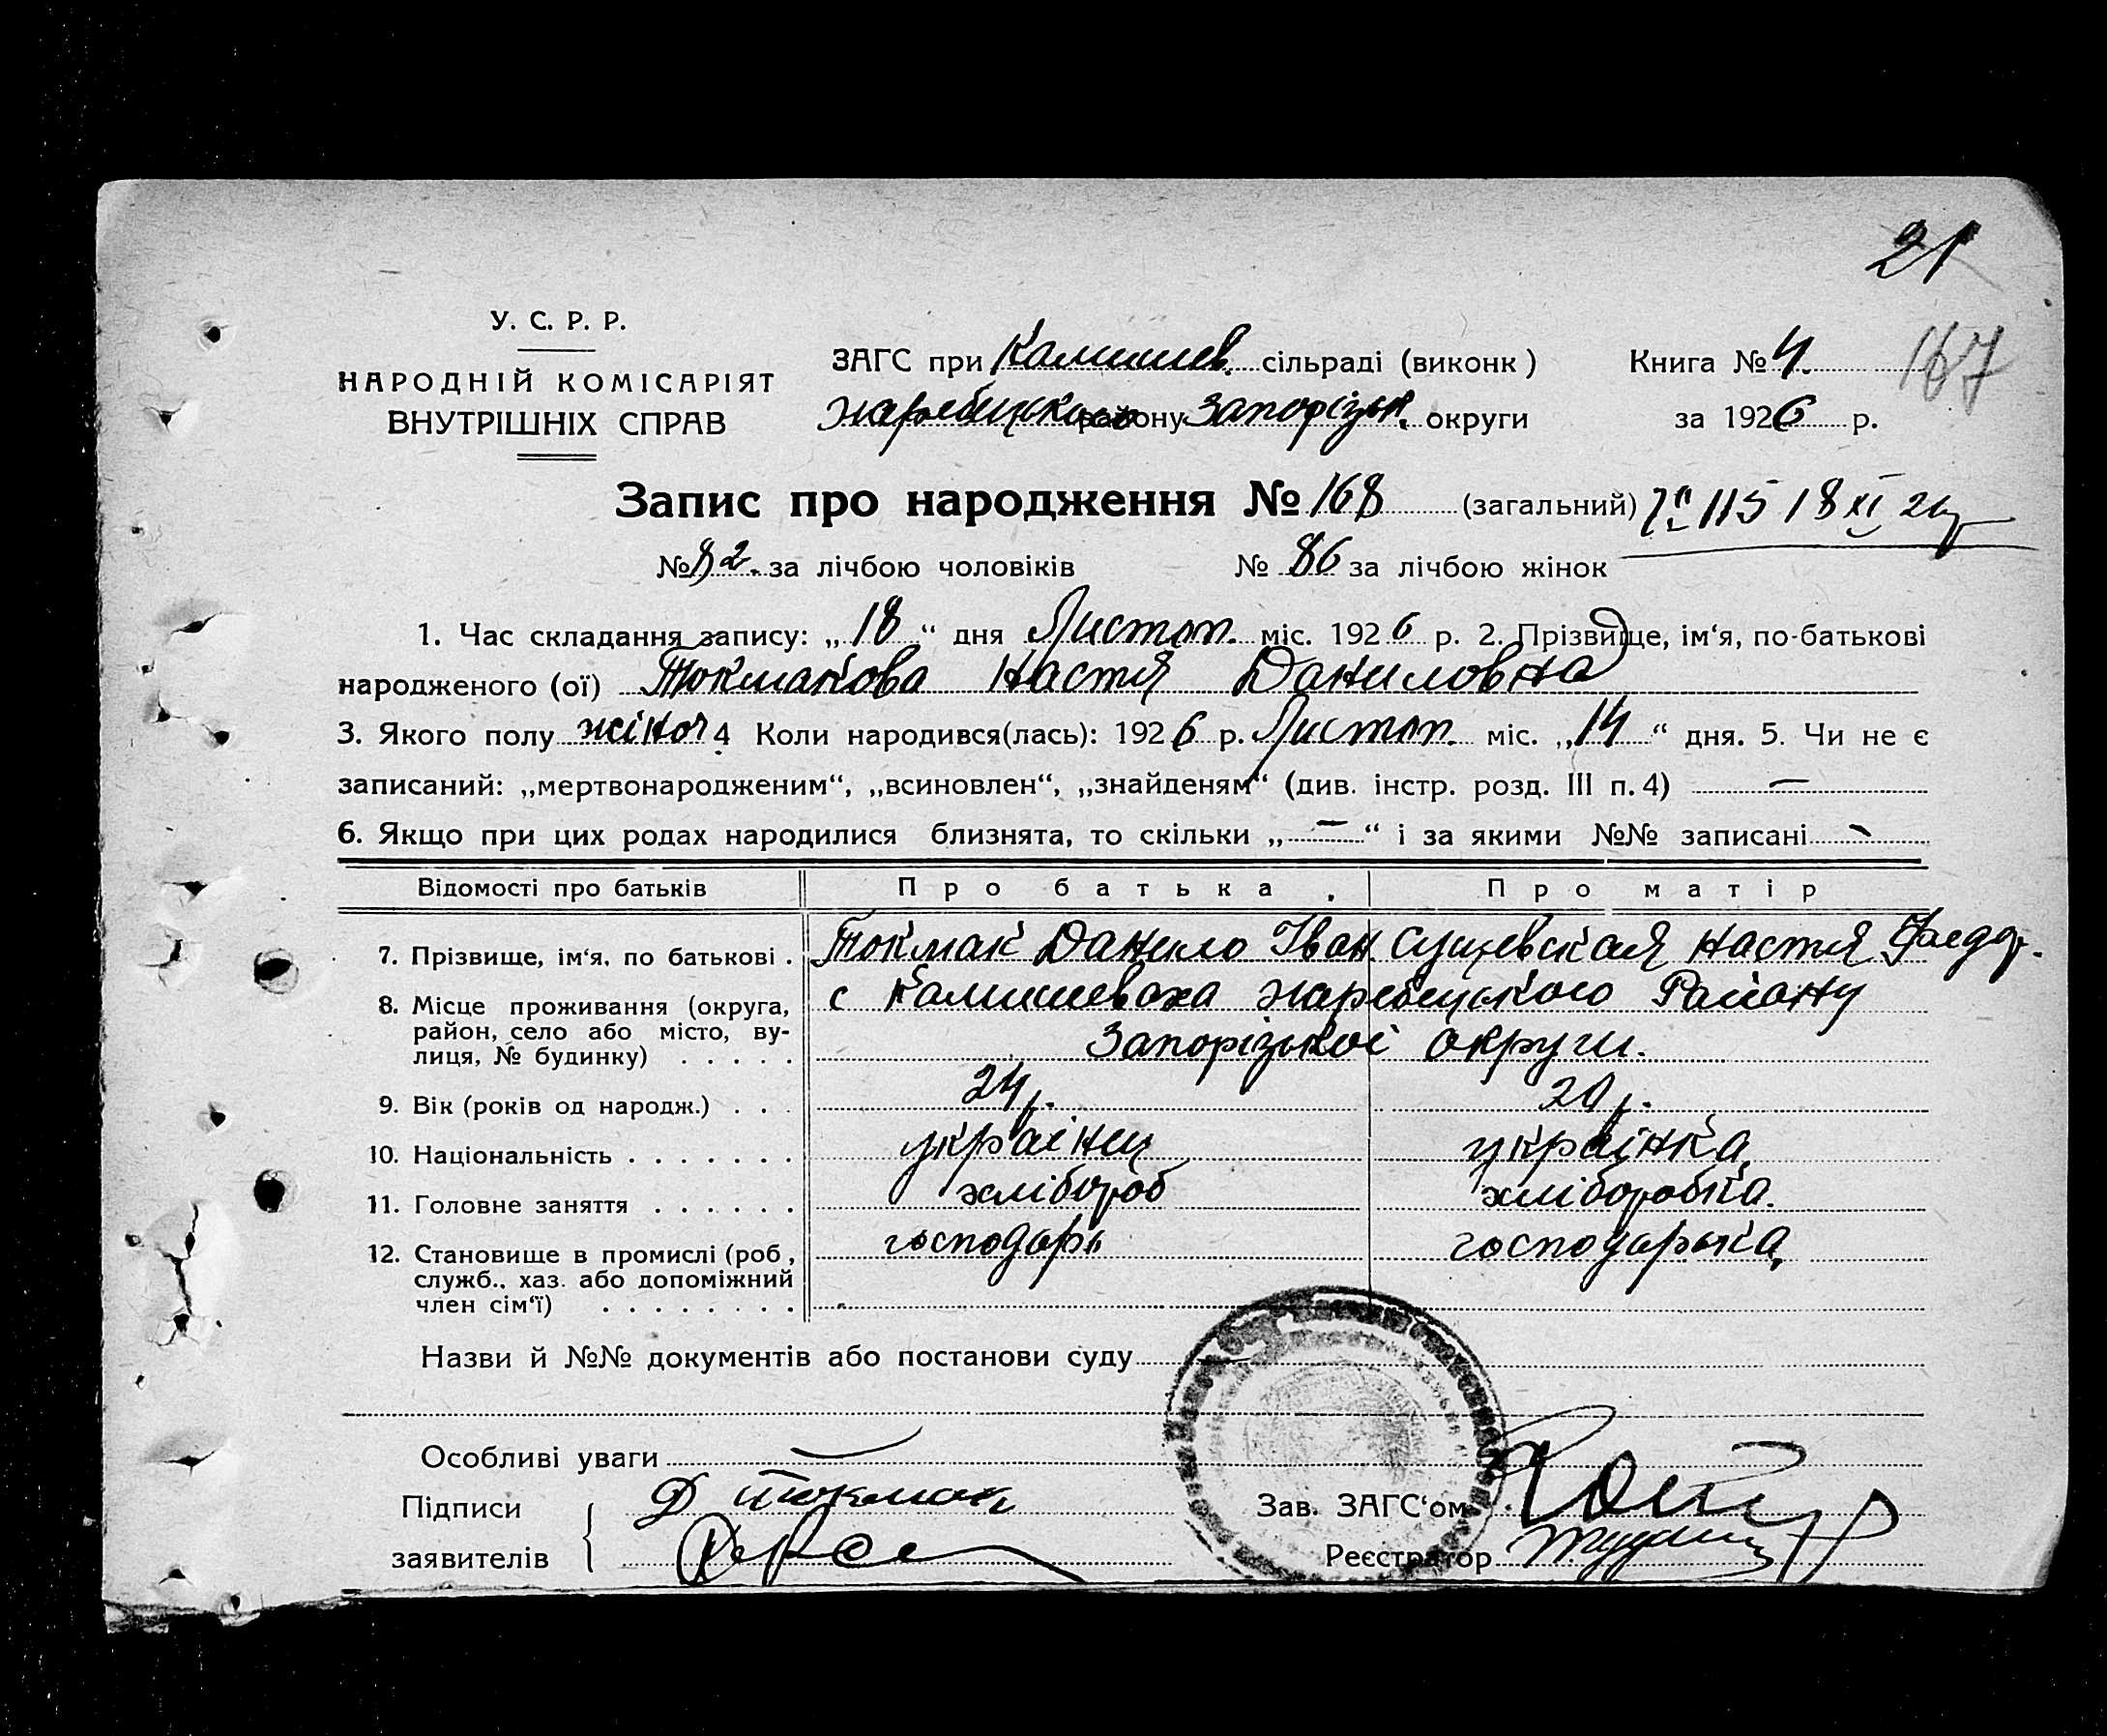 21
У. С. Р. Р.
НАРОДНІЙ КОМІСАРІЯТ
ВНУТРІШНІХ СПРАВ
ЗАГС при Камишев. сільраді (виконк)
Жеребецького району Запорізьк. округи
Книга № 4
за 1926 р.
167
Запис про народження № 168 (загальний) 115 18 XI 26р
№ 82. за лічбою чоловіків № 86 за лічбою жінок
1. Час складання запису: „18“ дня Листоп. міс. 1926 р. 2. Прізвище, ім‘я, по-батькові
народженого (ої) Токмакова Настя Даниловна
3. Якого полу жіноч 4 Коли народився(лась): 1926 р. Листоп. міс. „14“ дня. 5. Чи не є
записаний: „мертвонародженим“, „всиновлен“, „знайденям“ (див. інстр. розд. III п. 4) —
6. Якщо при цих родах народилися близнята, то скільки „—“ і за якими №№ записані —
Відомості про батьків Про батька Про матір
7. Прізвище, ім‘я, по батькові . Токмак Данило Іван Сущевская Настя Федор.
8. Місце проживання (округа, район, село або місто, вулиця, № будинку) . . . . . с Камишеваха Жеребецького Району
Запорізької округи.
9. Вік (років од народж.) . . . 24 р. 20 р.
10. Національність . . . . . . . українец українка
11. Головне заняття . . . . . . хлібороб хліборобка.
12. Становище в промислі (роб, служб., хаз. або допоміжний член сім‘ї) . . . . . . . . господарь господарька
Назви й №№ документів або постанови суду —
Особливі уваги —
Підписи заявителів Д Токмак
Зав. ЗАГС‘ом
Реєстратор